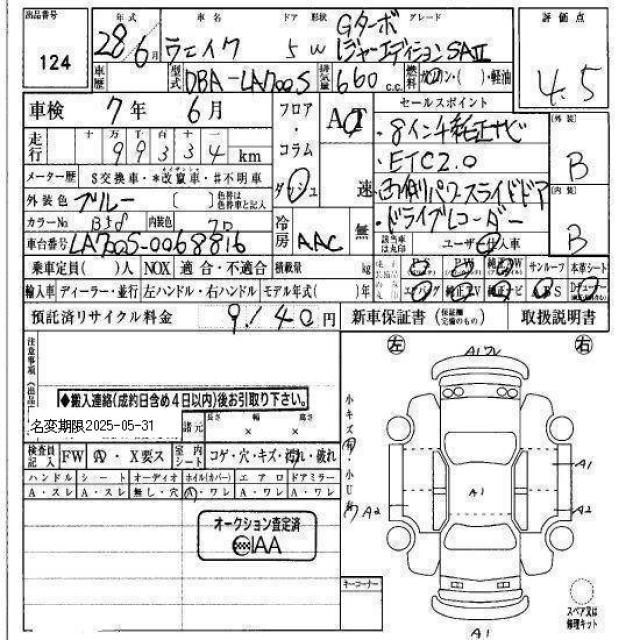 出品番号 年式 車名 ドア 形状 グレード 評価点
124 28年6月 ウェイク 5 W Gターボ レジャーエディションSAⅡ 4.5
車歴 型式 DBA-LA700S 排気量 660 c.c. 燃料 ガソリン・( )・軽油
車検 7年 6月 フロア・コラム AT セールスポイント [外装]
走行 十 万 千 百 十 一 ・8インチ純正ナビ
99334 km ・ETC2.0 B
メーター歴 $交換車・*改竄車・#不明車 ダッシュ 速 ・両側パワースライドドア [内装]
外装色 ブルー [ ] 色替は色替車と記入 ・ドライブレコーダー
カラーNo B58 内装色 冷房 AAC 無 該当車は丸印 ユーザー法人車 B
車台番号 LA700S-0068816
乗車定員( )人 NOX 適合・不適合 積載量 kg サンルーフ 本革シート
輸入車 ディーラー・並行 左ハンドル・右ハンドル モデル年式( )年 エアバッグ 純正TV 純正ナビ ABS
預託済リサイクル料金 9140円 新車保証書 取扱説明書
注意事項 左 右
◆搬入連絡(成約日含め4日以内)後お引取り下さい。
名変期限2025-05-31 諸元 長さ 幅 高さ
× ×
検査員記入 FW Ⓐ・X要ス 室内シート コゲ・穴・キズ・汚れ・破れ
ハンドル シート オーディオ ホイル(カバー) エアロ ドアミラー
A・スレ A・スレ 無し・穴 A・ワレ A・ワレ A・ワレ
小キズ 小U
A1
A1
A2
A2
A1
オークション査定済
AIAA
キーコーナー
スペア又は修理キット